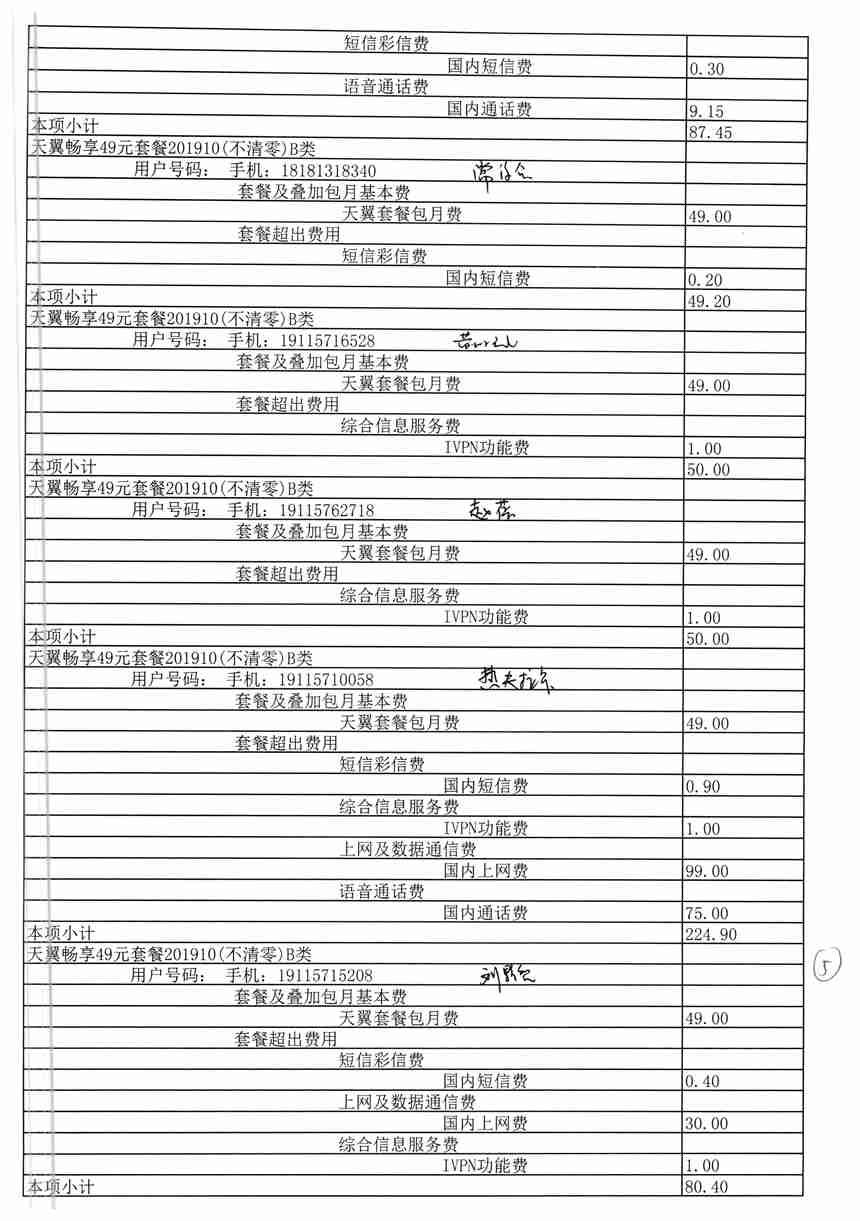 短信彩信费
国内短信费 0.30
语音通话费
国内通话费 9.15
本项小计 87.45
天翼畅享49元套餐201910(不清零)B类
用户号码： 手机：18181318340
套餐及叠加包月基本费
天翼套餐包月费 49.00
套餐超出费用
短信彩信费
国内短信费 0.20
本项小计 49.20
天翼畅享49元套餐201910(不清零)B类
用户号码： 手机：19115716528
套餐及叠加包月基本费
天翼套餐包月费 49.00
套餐超出费用
综合信息服务费
IVPN功能费 1.00
本项小计 50.00
天翼畅享49元套餐201910(不清零)B类
用户号码： 手机：19115762718 赵蓓
套餐及叠加包月基本费
天翼套餐包月费 49.00
套餐超出费用
综合信息服务费
IVPN功能费 1.00
本项小计 50.00
天翼畅享49元套餐201910(不清零)B类
用户号码： 手机：19115710058
套餐及叠加包月基本费
天翼套餐包月费 49.00
套餐超出费用
短信彩信费
国内短信费 0.90
综合信息服务费
IVPN功能费 1.00
上网及数据通信费
国内上网费 99.00
语音通话费
国内通话费 75.00
本项小计 224.90
天翼畅享49元套餐201910(不清零)B类
用户号码： 手机：19115715208
5
套餐及叠加包月基本费
天翼套餐包月费 49.00
套餐超出费用
短信彩信费
国内短信费 0.40
上网及数据通信费
国内上网费 30.00
综合信息服务费
IVPN功能费 1.00
本项小计 80.40